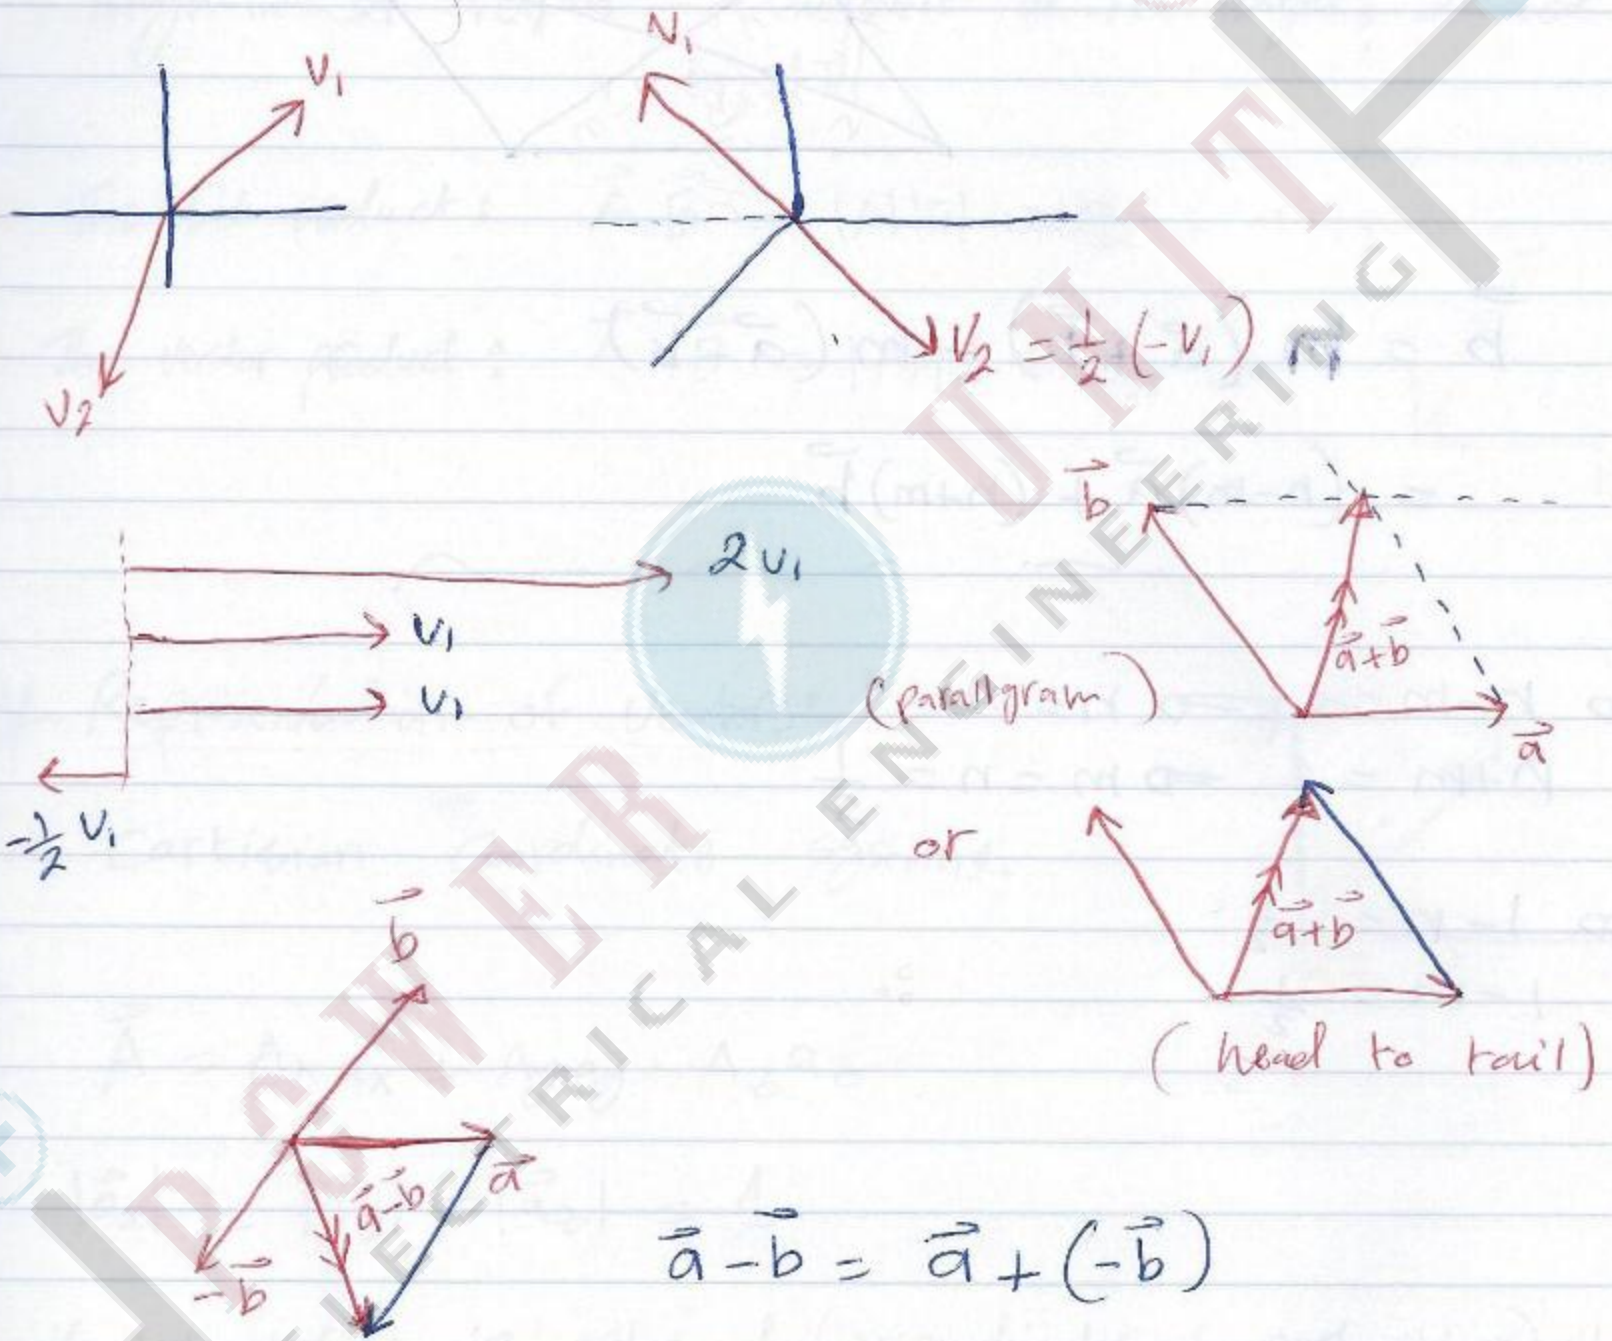 V₁
V₂
V₁
V₂ = ½ (-V₁)
2V₁
V₁
V₁
-½ V₁
b⃗
a⃗+b⃗
a⃗
(parallgram)
or
a⃗+b⃗
(head to tail)
b⃗
a⃗
a⃗-b⃗
-b⃗
a⃗-b⃗ = a⃗+(-b⃗)
POWER UNIT
ELECTRICAL ENGINEERING